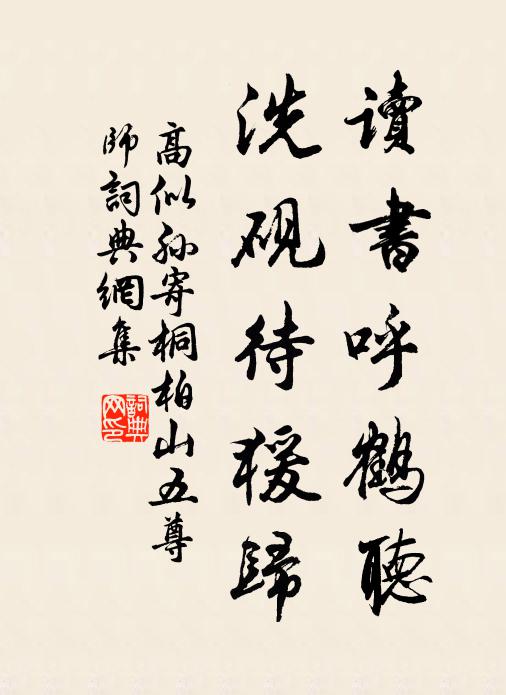 讀書呼鶴聽
洗硯待猨歸
高似孫寄桐柏山五尊
師詞典網集
詞典
网印